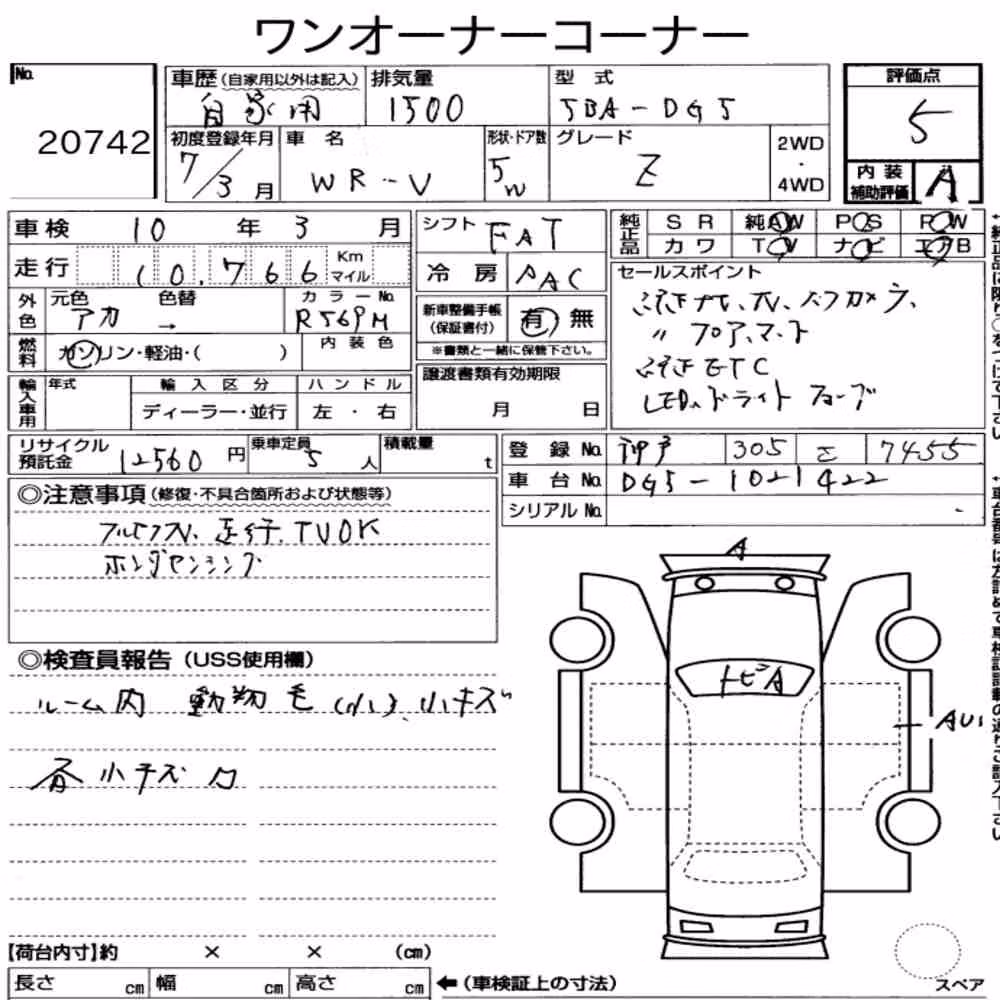 ワンオーナーコーナー
No. 20742
車歴(自家用以外は記入) 自家用
排気量 1500
型式 5BA-DG5
評価点 5
初度登録年月 7/3月
車名 WR-V
形状・ドア数 5W
グレード Z
2WD・4WD
内装補助評価 A
車検 10年 3月
シフト FAT
純正品 SR 純AW PS PW
カワ TV ナビ エアB
走行 10,766 Km マイル
冷房 AAC
セールスポイント
純正ナビ、TV、バックカメラ、
〃 フロアマット
純正ETC
LED、ドライト
外色 元色 アカ → 色替
カラーNo. R569M
新車整備手帳(保証書付) 有 無
※書類と一緒に保管下さい。
燃料 ガソリン・軽油・( )
内装色
譲渡書類有効期限
月 日
輸入車用 年式 輸入区分 ハンドル
ディーラー・並行 左・右
リサイクル預託金 12560円
乗車定員 5人
積載量 t
登録No. 神戸 305 7455
車台No. DG5-1021422
シリアルNo. -
◎注意事項(修復・不具合箇所および状態等)
フルセグTV、走行、TVOK
ホンダセンシング
◎検査員報告(USS使用欄)
ルーム内 動物毛(小)、小キズ
各小キズ
A
トビA
AU1
【荷台内寸】約 × × (cm)
長さ cm 幅 cm 高さ cm
←(車検証上の寸法)
スペア